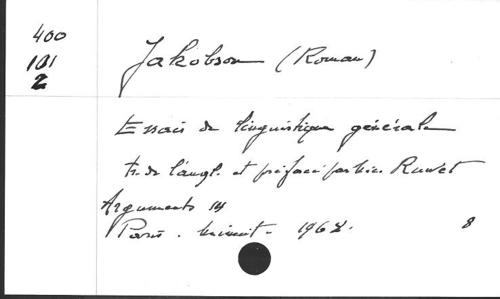 400
101
2
Jakobson (Roman)
Essais de linguistique générale
tr. de l'angl. et préfacé par Nic. Ruwet
Arguments 14
Paris. Minuit. 1964.
8